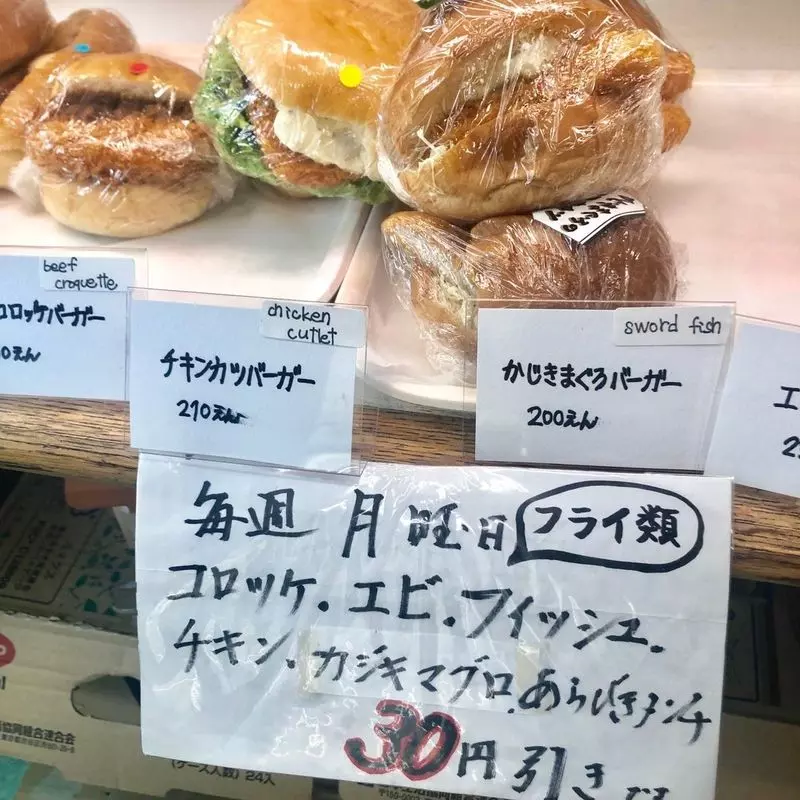 beef
croquette
コロッケバーガー
0えん
chicken
cutlet
チキンカツバーガー
210えん
sword fish
かじきまぐろバーガー
200えん
エ
2
毎週 月曜日 フライ類
コロッケ.エビ.フィッシュ.
チキン.カジキマグロ.あらびきメンチ
30円引き
協同組合連合会
(ケース入数) 24入